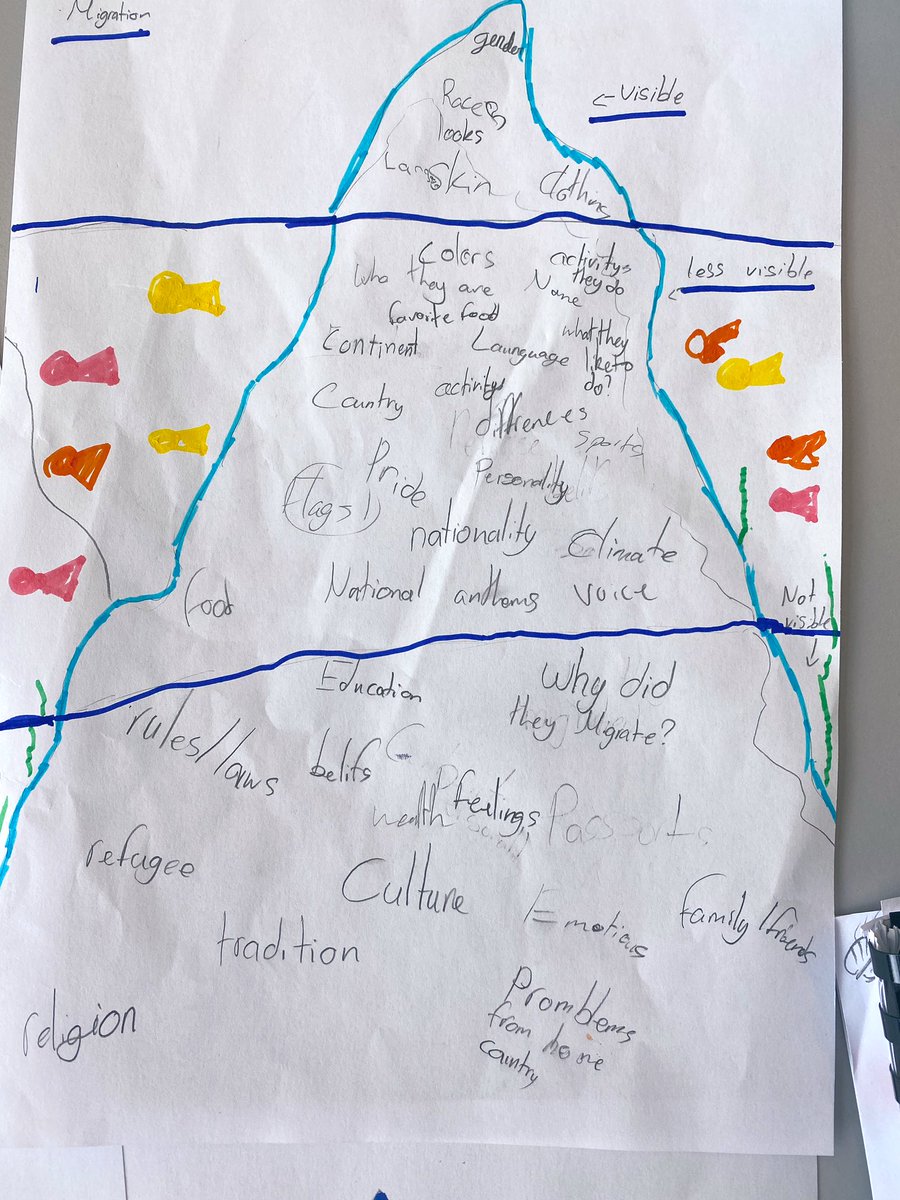 Migration
gender
Race
looks
skin
clothing
← visible
Colors
activitys
they do
less visible
who they are
Name
favorite food
Continent
Launguage
what they
like to
do?
Country
activity
diffrences
sports
Pride
Personality
Flags
nationality
Climate
food
National anthems
voice
Not
visible
Education
Why did
they Migrate?
rules/laws
belifs
feelings
wealth
Passports
refugee
Culture
Emotions
family/friends
tradition
Promblems
from home
country
religion